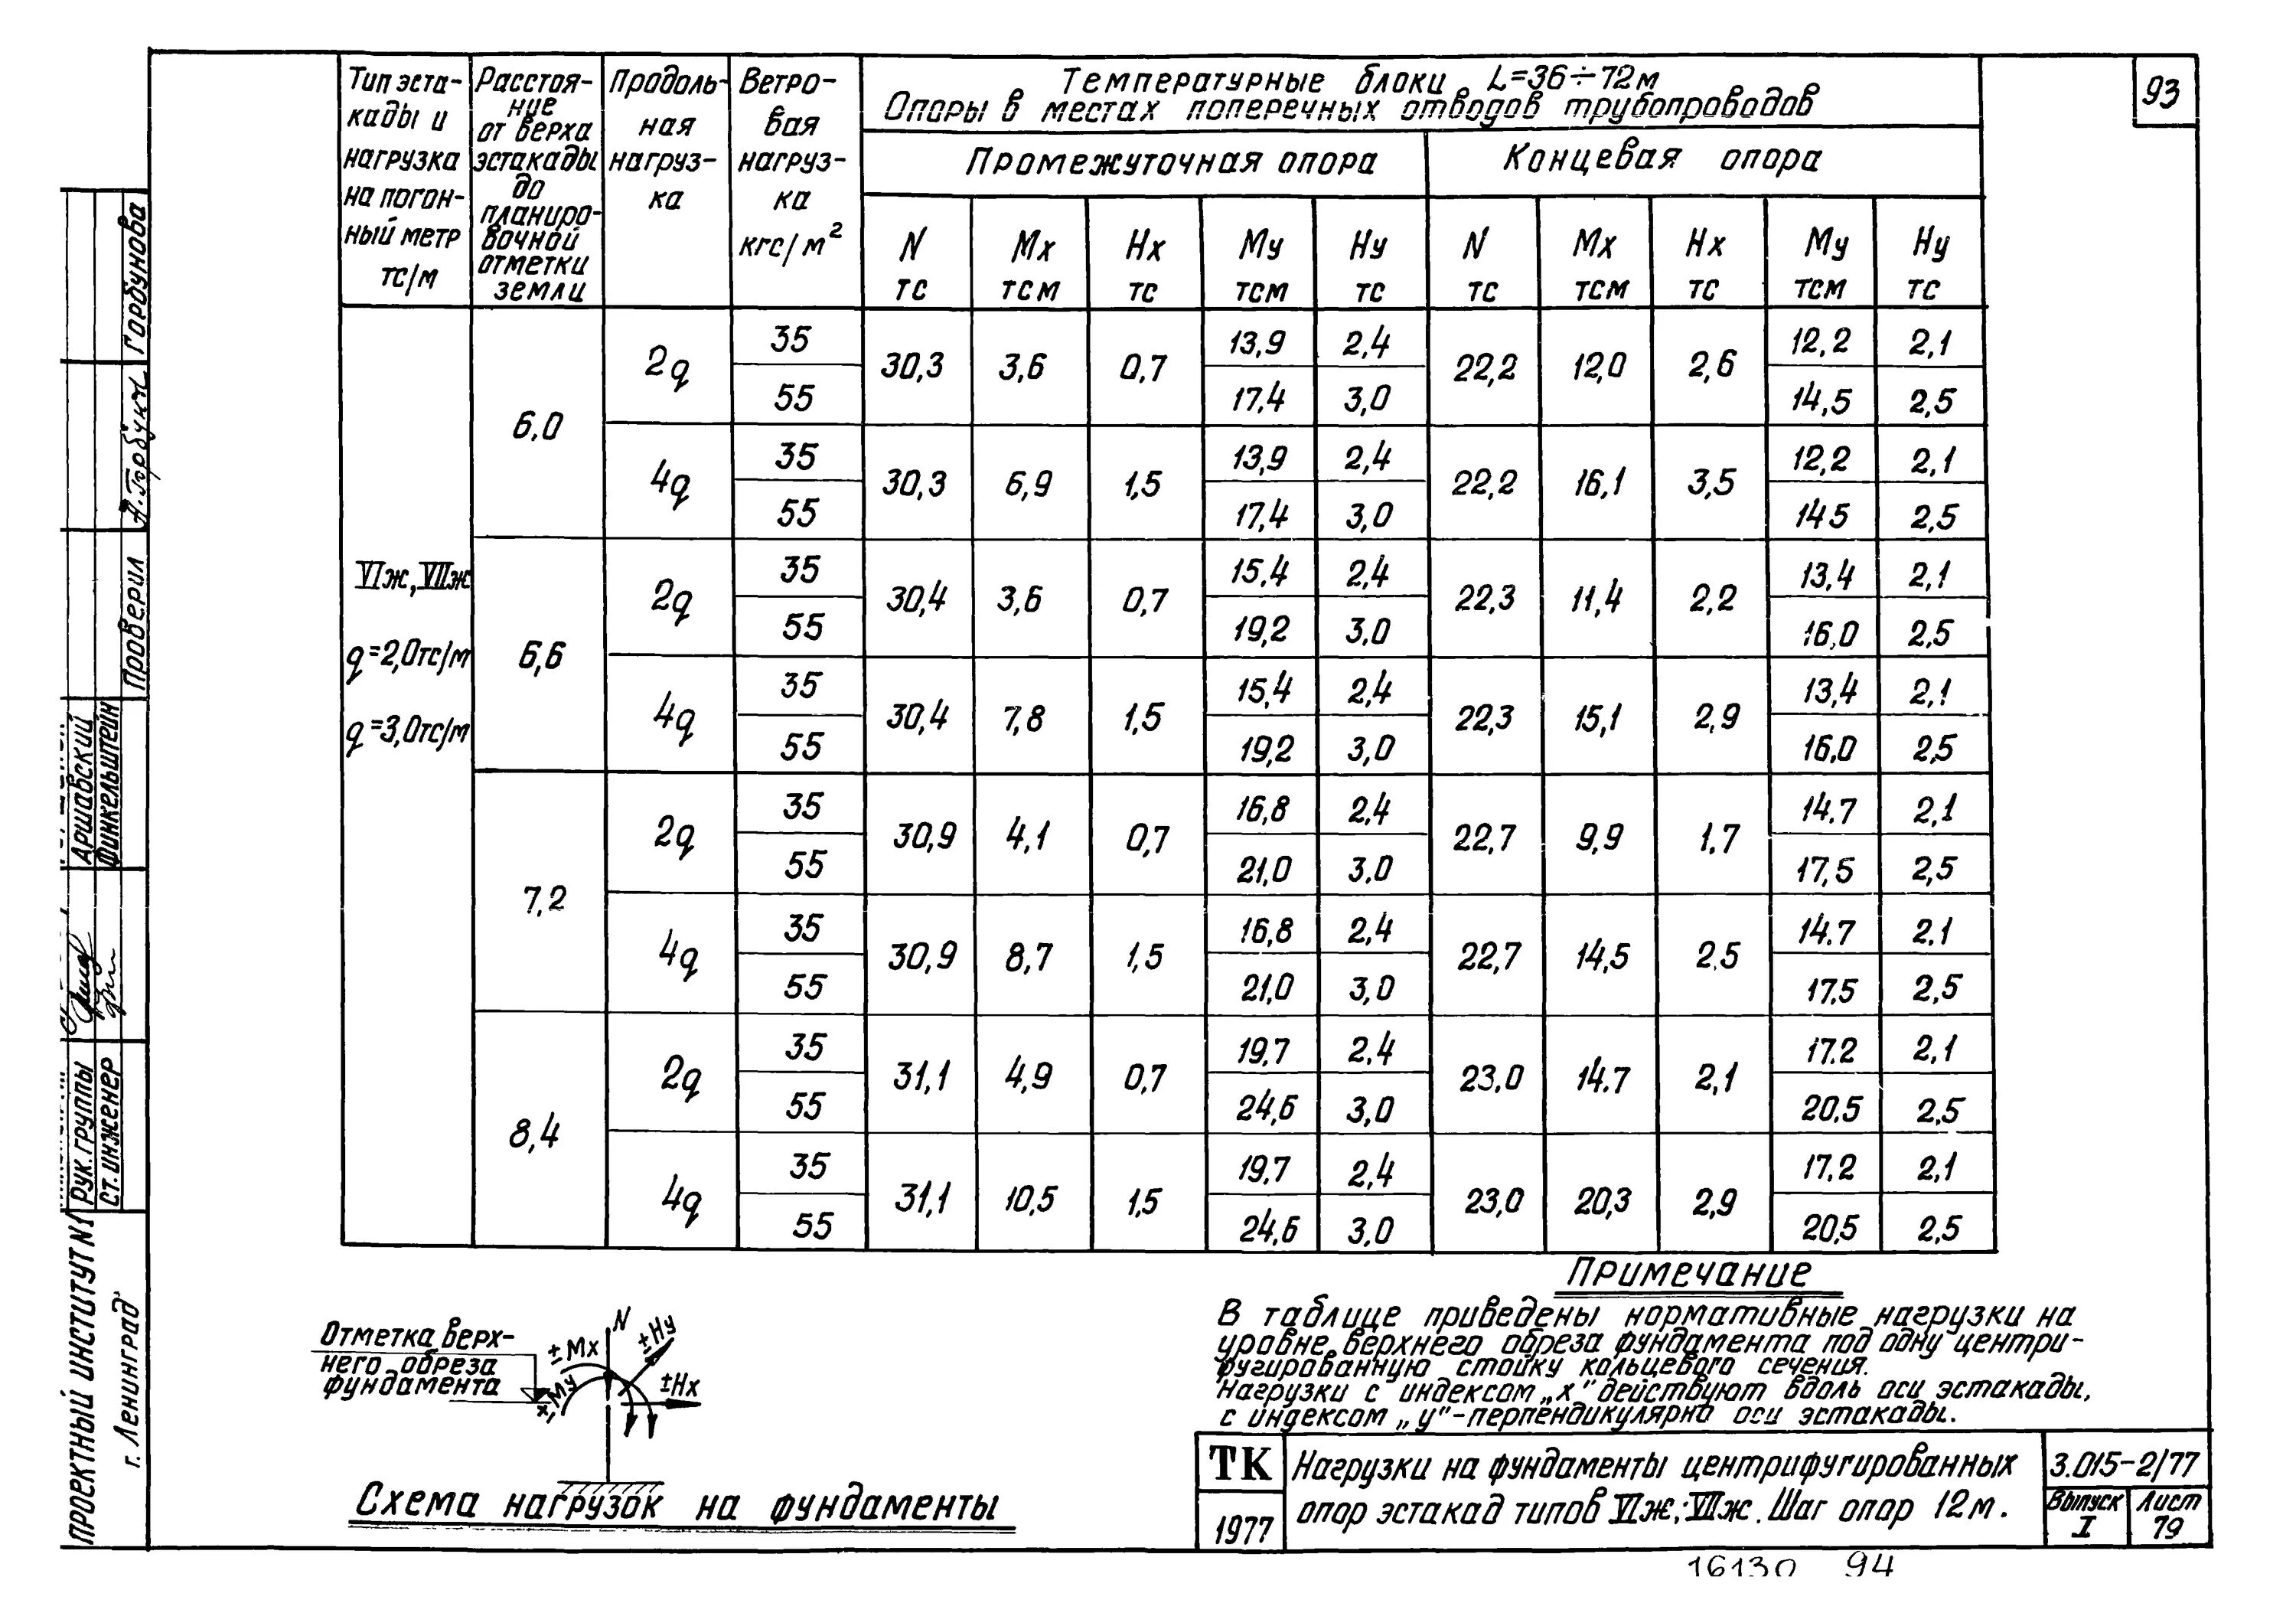 93
Тип эста-
кады и
нагрузка
на погон-
ный метр
тс/м
Расстоя-
ние
от верха
эстакады
до
планиро-
вочной
отметки
земли
Продоль-
ная
нагруз-
ка
Ветро-
вая
нагруз-
ка
кгс/м²
Температурные блоки L=36÷72м
Опоры в местах поперечных отводов трубопроводов
Промежуточная опора Концевая опора
N Мх Нх Му Ну N Мх Нх Му Ну
тс тсм тс тсм тс тс тсм тс тсм тс
VIж, VIIж
q=2,0тс/м
q=3,0тс/м
6,0
2q 35 30,3 3,6 0,7 13,9 2,4 22,2 12,0 2,6 12,2 2,1
55 17,4 3,0 14,5 2,5
4q 35 30,3 6,9 1,5 13,9 2,4 22,2 16,1 3,5 12,2 2,1
55 17,4 3,0 14,5 2,5
6,6
2q 35 30,4 3,6 0,7 15,4 2,4 22,3 11,4 2,2 13,4 2,1
55 19,2 3,0 16,0 2,5
4q 35 30,4 7,8 1,5 15,4 2,4 22,3 15,1 2,9 13,4 2,1
55 19,2 3,0 16,0 2,5
7,2
2q 35 30,9 4,1 0,7 16,8 2,4 22,7 9,9 1.7 14.7 2,1
55 21,0 3.0 17,5 2,5
4q 35 30,9 8,7 1,5 16,8 2,4 22,7 14,5 2.5 14.7 2.1
55 21,0 3,0 17,5 2,5
8,4
2q 35 31,1 4,9 0,7 19,7 2,4 23,0 14.7 2,1 17.2 2,1
55 24,6 3,0 20,5 2,5
4q 35 31,1 10,5 1,5 19,7 2,4 23,0 20,3 2,9 17,2 2,1
55 24,6 3,0 20,5 2,5
Примечание
В таблице приведены нормативные нагрузки на
уровне верхнего обреза фундамента под одну центри-
фугированную стойку кольцевого сечения.
Нагрузки с индексом „х" действуют вдоль оси эстакады,
с индексом „у"-перпендикулярно оси эстакады.
Отметка верх-
него обреза
фундамента
N
±Мх
±Му
±Ну
±Нх
Схема нагрузок на фундаменты
ТК
1977
Нагрузки на фундаменты центрифугированных
опор эстакад типов VIж; VIIж. Шаг опор 12м.
3.015-2/77
Выпуск
I
Лист
79
16130 94
Проектный институт №1
г. Ленинград
Рук. группы
Ст. инженер
Аршавский
Финкельштейн
Проверил
А. Горбунк
Горбунова